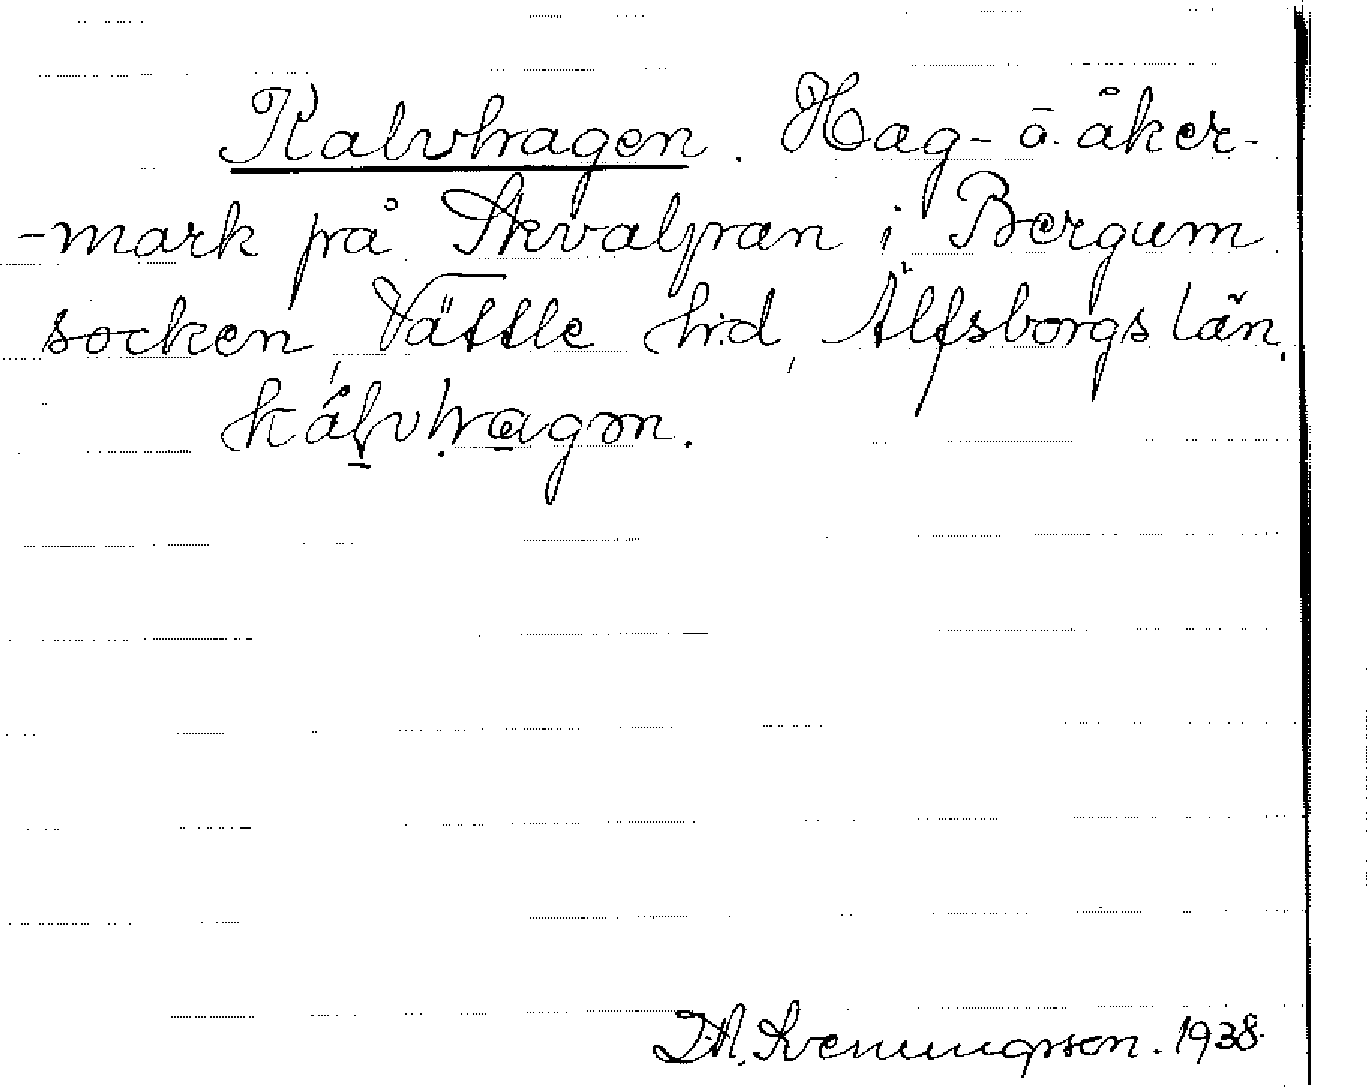 Kalvhagen. Hag- o. åker-
-mark på Skvalpan i Bergum
socken, Vättle h:d, Älfsborgs län.
kálvhagən.
Th. Sveningson. 1938.